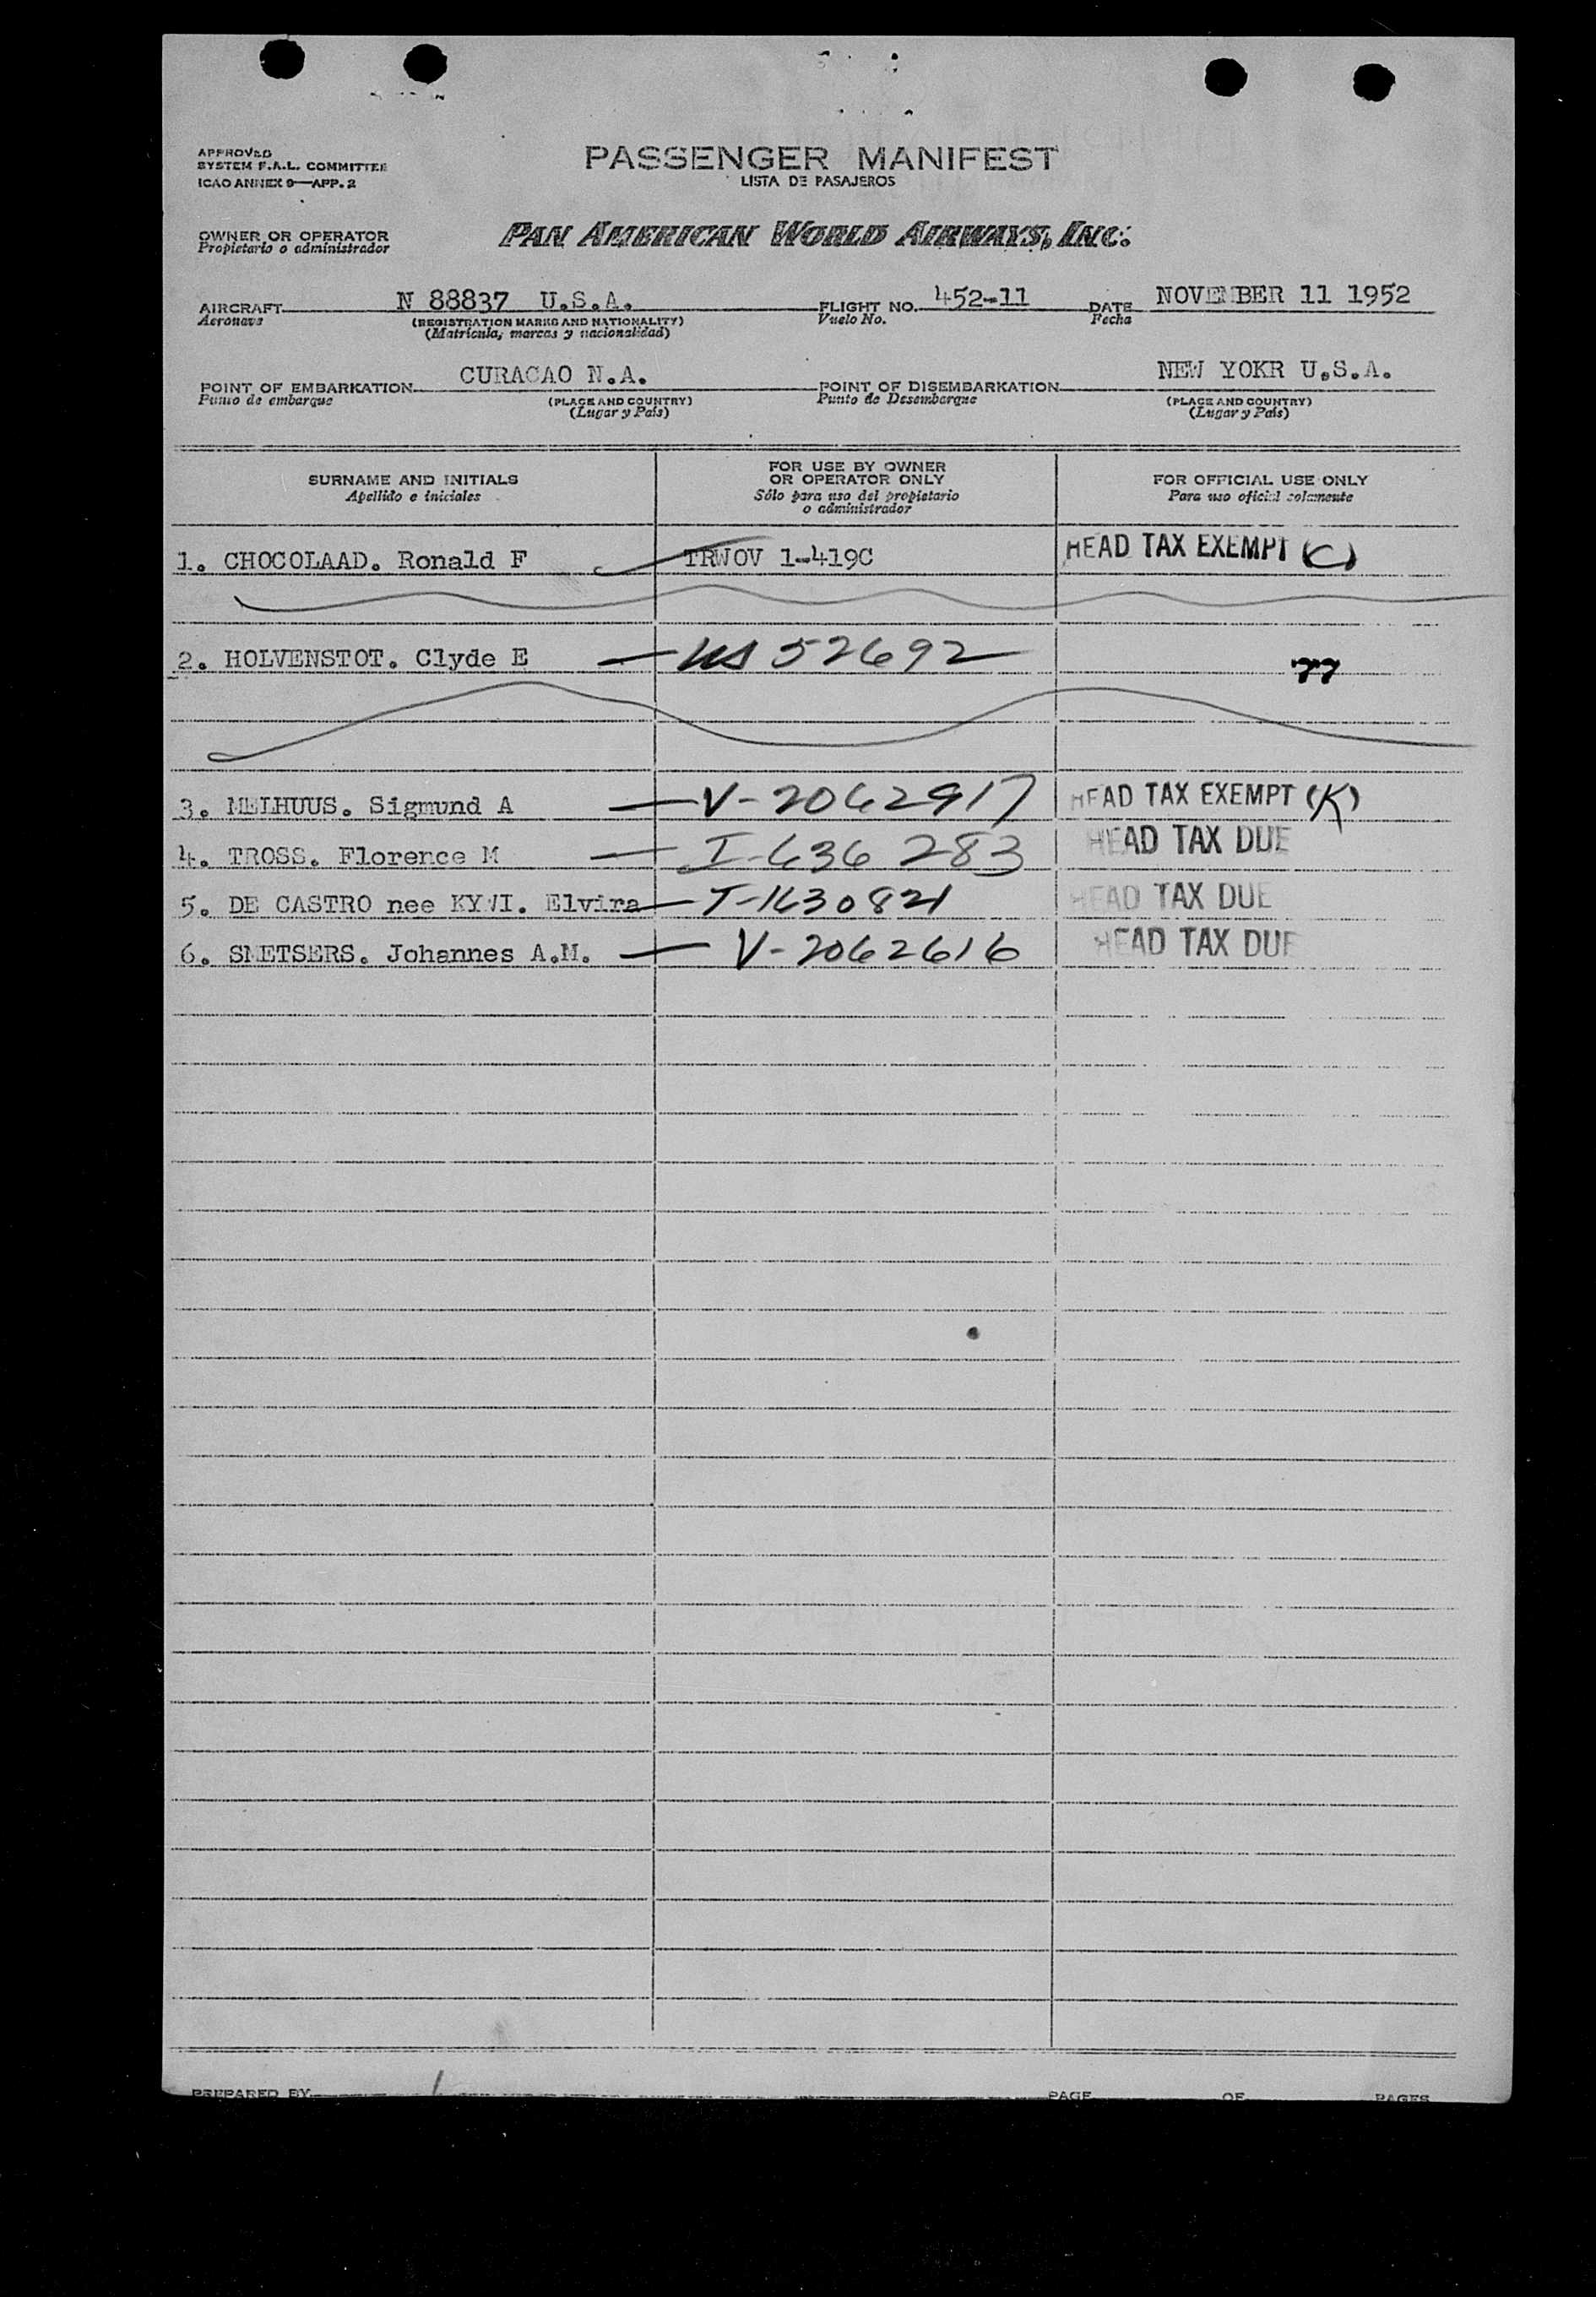 APPROVED
SYSTEM F.A.L. COMMITTEE
ICAO ANNEX 9—APP. 2
PASSENGER MANIFEST
LISTA DE PASAJEROS
OWNER OR OPERATOR
Propietario o administrador
PAN AMERICAN WORLD AIRWAYS, INC.
AIRCRAFT N 88837 U.S.A. FLIGHT NO. 452-11 DATE NOVEMBER 11 1952
Aeronave (REGISTRATION MARKS AND NATIONALITY) Vuelo No. Fecha
(Matrícula, marcas y nacionalidad)
POINT OF EMBARKATION CURACAO N.A. POINT OF DISEMBARKATION NEW YOKR U.S.A.
Punto de embarque (PLACE AND COUNTRY) Punto de Desembarque (PLACE AND COUNTRY)
(Lugar y País) (Lugar y País)
SURNAME AND INITIALS
Apellido e iniciales
FOR USE BY OWNER
OR OPERATOR ONLY
Sólo para uso del propietario
o administrador
FOR OFFICIAL USE ONLY
Para uso oficial solamente
1. CHOCOLAAD. Ronald F TRWOV 1-419C HEAD TAX EXEMPT (C)
2. HOLVENSTOT. Clyde E — US 52692
3. MELHUUS. Sigmund A — V-2062917 HEAD TAX EXEMPT (K)
4. TROSS. Florence M — I-636 283 HEAD TAX DUE
5. DE CASTRO nee KYWI. Elvira — I-1630821 HEAD TAX DUE
6. SMETSERS. Johannes A.M. — V-2062616 HEAD TAX DUE
PREPARED BY PAGE OF PAGES